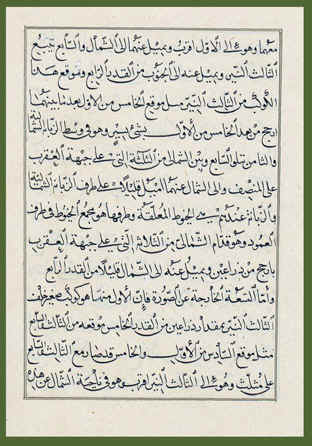 معها وهو الى الاول اقرب ويميل عنهما الى الشمال والتابع يتبع
الثالث النير ويميل عنه الى الجنوب من القدر الرابع وموقع هذا
الاول من الثالث النير مثل موقع الخامس من الاول بعد ما بينهما
ارجح من بعد الخامس من الاول بشئ يسير وهو في وسط الزبانا الشمالية
والثامن يتلو التابع وبين الشمالى من الثلثة التى على جبهة العقرب
على المنصف والى الشمال عنهما اميل قليلا على طرف الزبانا الشمالية
والزبانا عندكم هى الخيوط المعلقة وطرفها هو مجمع الخيوط فى طرف
العمود وهو قدام الشمالى من الثلاثة التى على جبهة العقرب
بارجح من ذراعين ويميل عنه الى الشمال قليلا من القدر الرابع
واما التسعة الخارجة عن الصورة فان الاول منها هو كوكب خلف
الثالث النير بمقدار ذراعين من القدر الخامس موقعه من الثالث النير
مثل موقع السادس من الاول والخامس قد صار مع الثالث التابع
على مثلث وهو الى الثالث النير اقرب وهو فى ناحية الشمال عن هذه